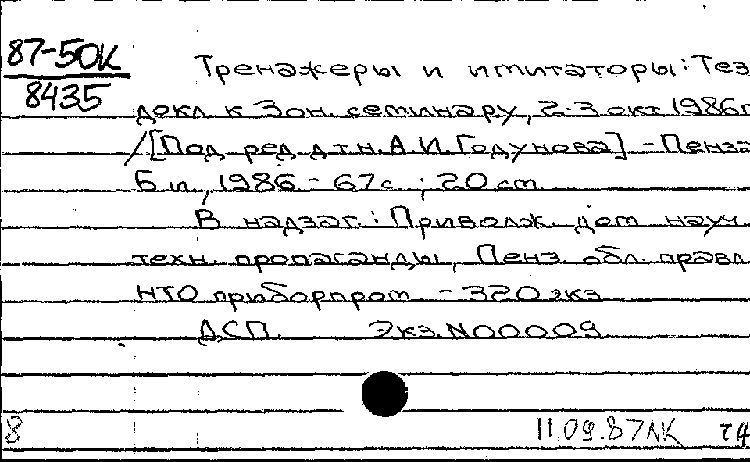 87-50К
8435
Тренажеры и имитаторы: Тез
докл. к Зон. семинару, 2-3 окт 1986г
/[Под ред. д.т.н. А.И. Годунова] - Пенза
Б.и., 1986 - 67с.; 20 см
В надзаг.: Приволж. дом науч.
техн. пропаганды, Пенз. обл. правл
НТО приборпром - 320 экз
ДСП. Экз. N00009
8 11.09.87 ЛК